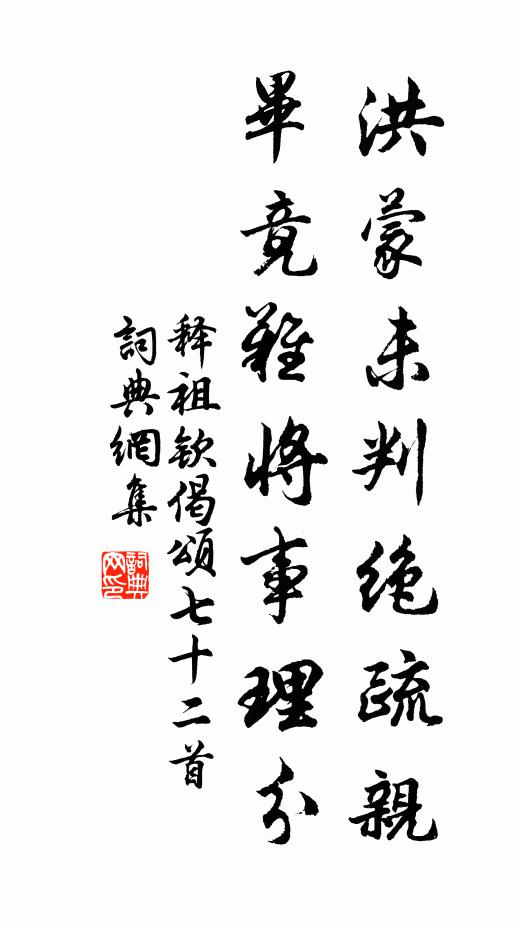 洪蒙未判绝疏親
畢竟難將事理分
释祖钦偈頌七十二首
詞典網集
詞典网印